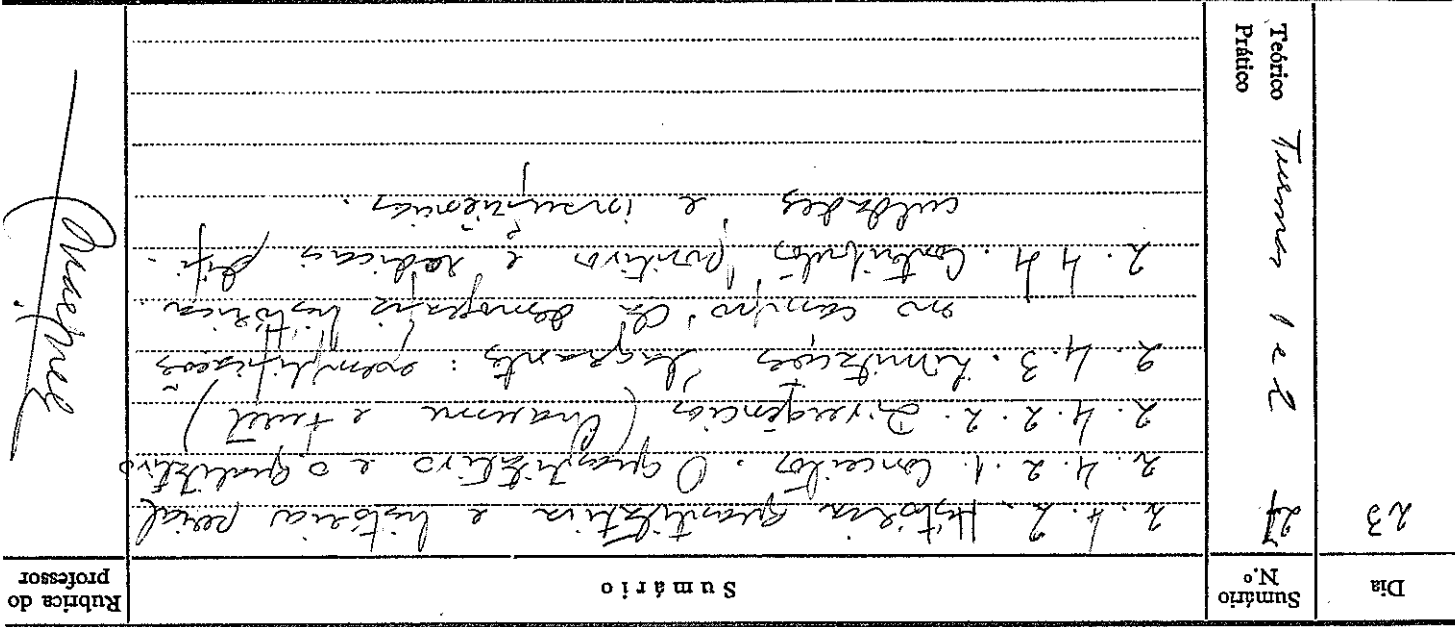 Dia
Sumário N.º
Sumário
Rubrica do professor
23
24
Teórico
Prático
Turmas 1 e 2
2.4.2. História quantitativa e história serial
2.4.2.1. Conceitos. O quantitativo e o qualitativo
2.4.2.2. Divergências (Chaunu e Furet)
2.4.3. Limitações flagrantes: exemplificações
no campo da demografia histórica.
2.4.4. Contributos positivos e radicais difi-
culdades e insuficiências.